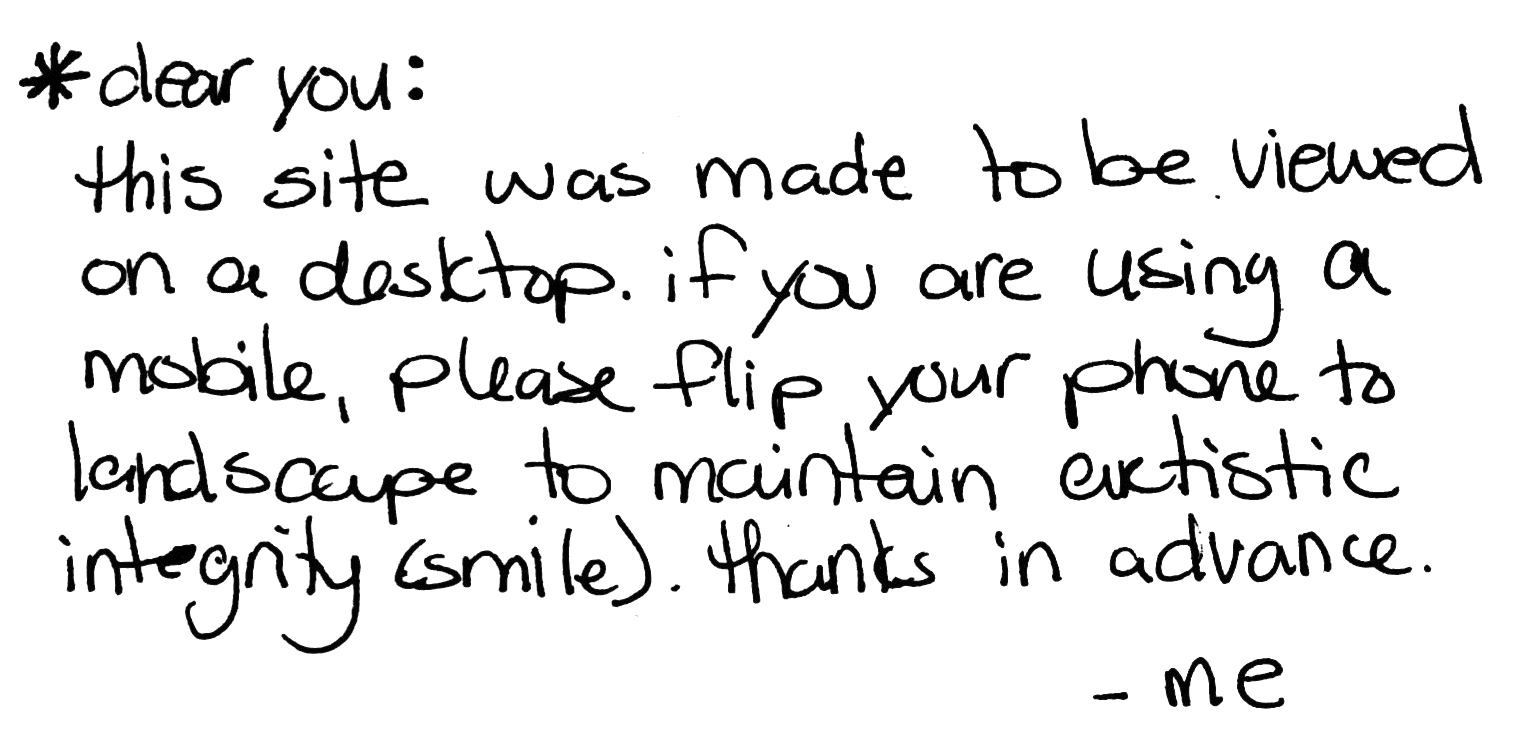 *dear you:
this site was made to be viewed
on a desktop. if you are using a
mobile, please flip your phone to
landscape to maintain artistic
integrity (smile). thanks in advance.
- me